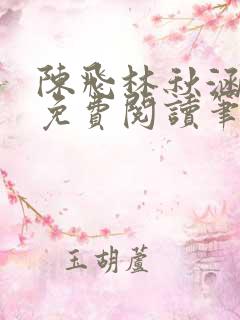 陳飛林秋涵
免費閱讀筆
玉胡蘆